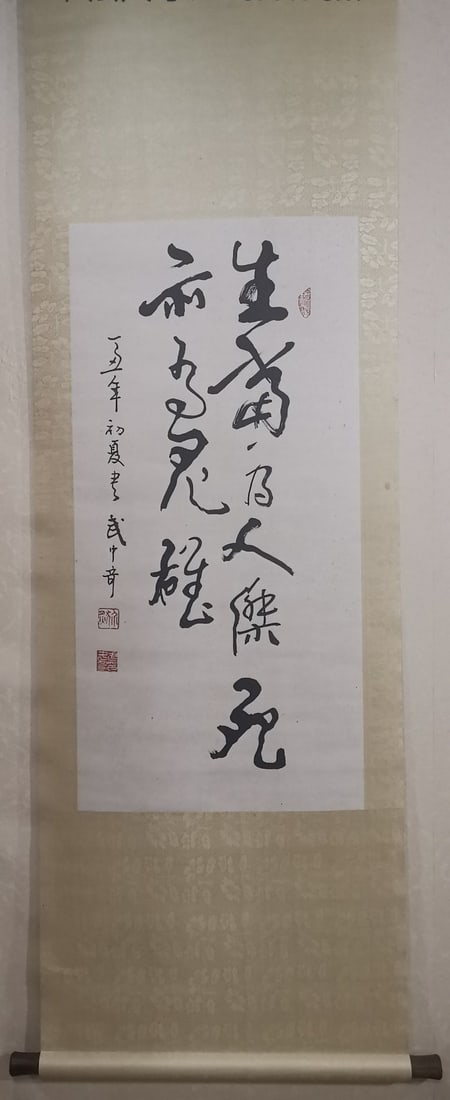 生當为人傑死
亦为鬼雄
丁丑年初夏书武中奇